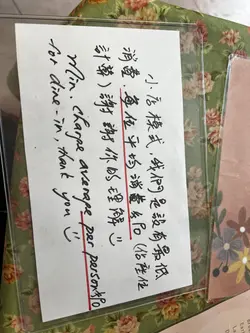 小店模式,我們是設有最低
消費 每位平均消費 (佔座位
計算) 謝謝你的理解
Min. charge average per person
for dine-in, thank you